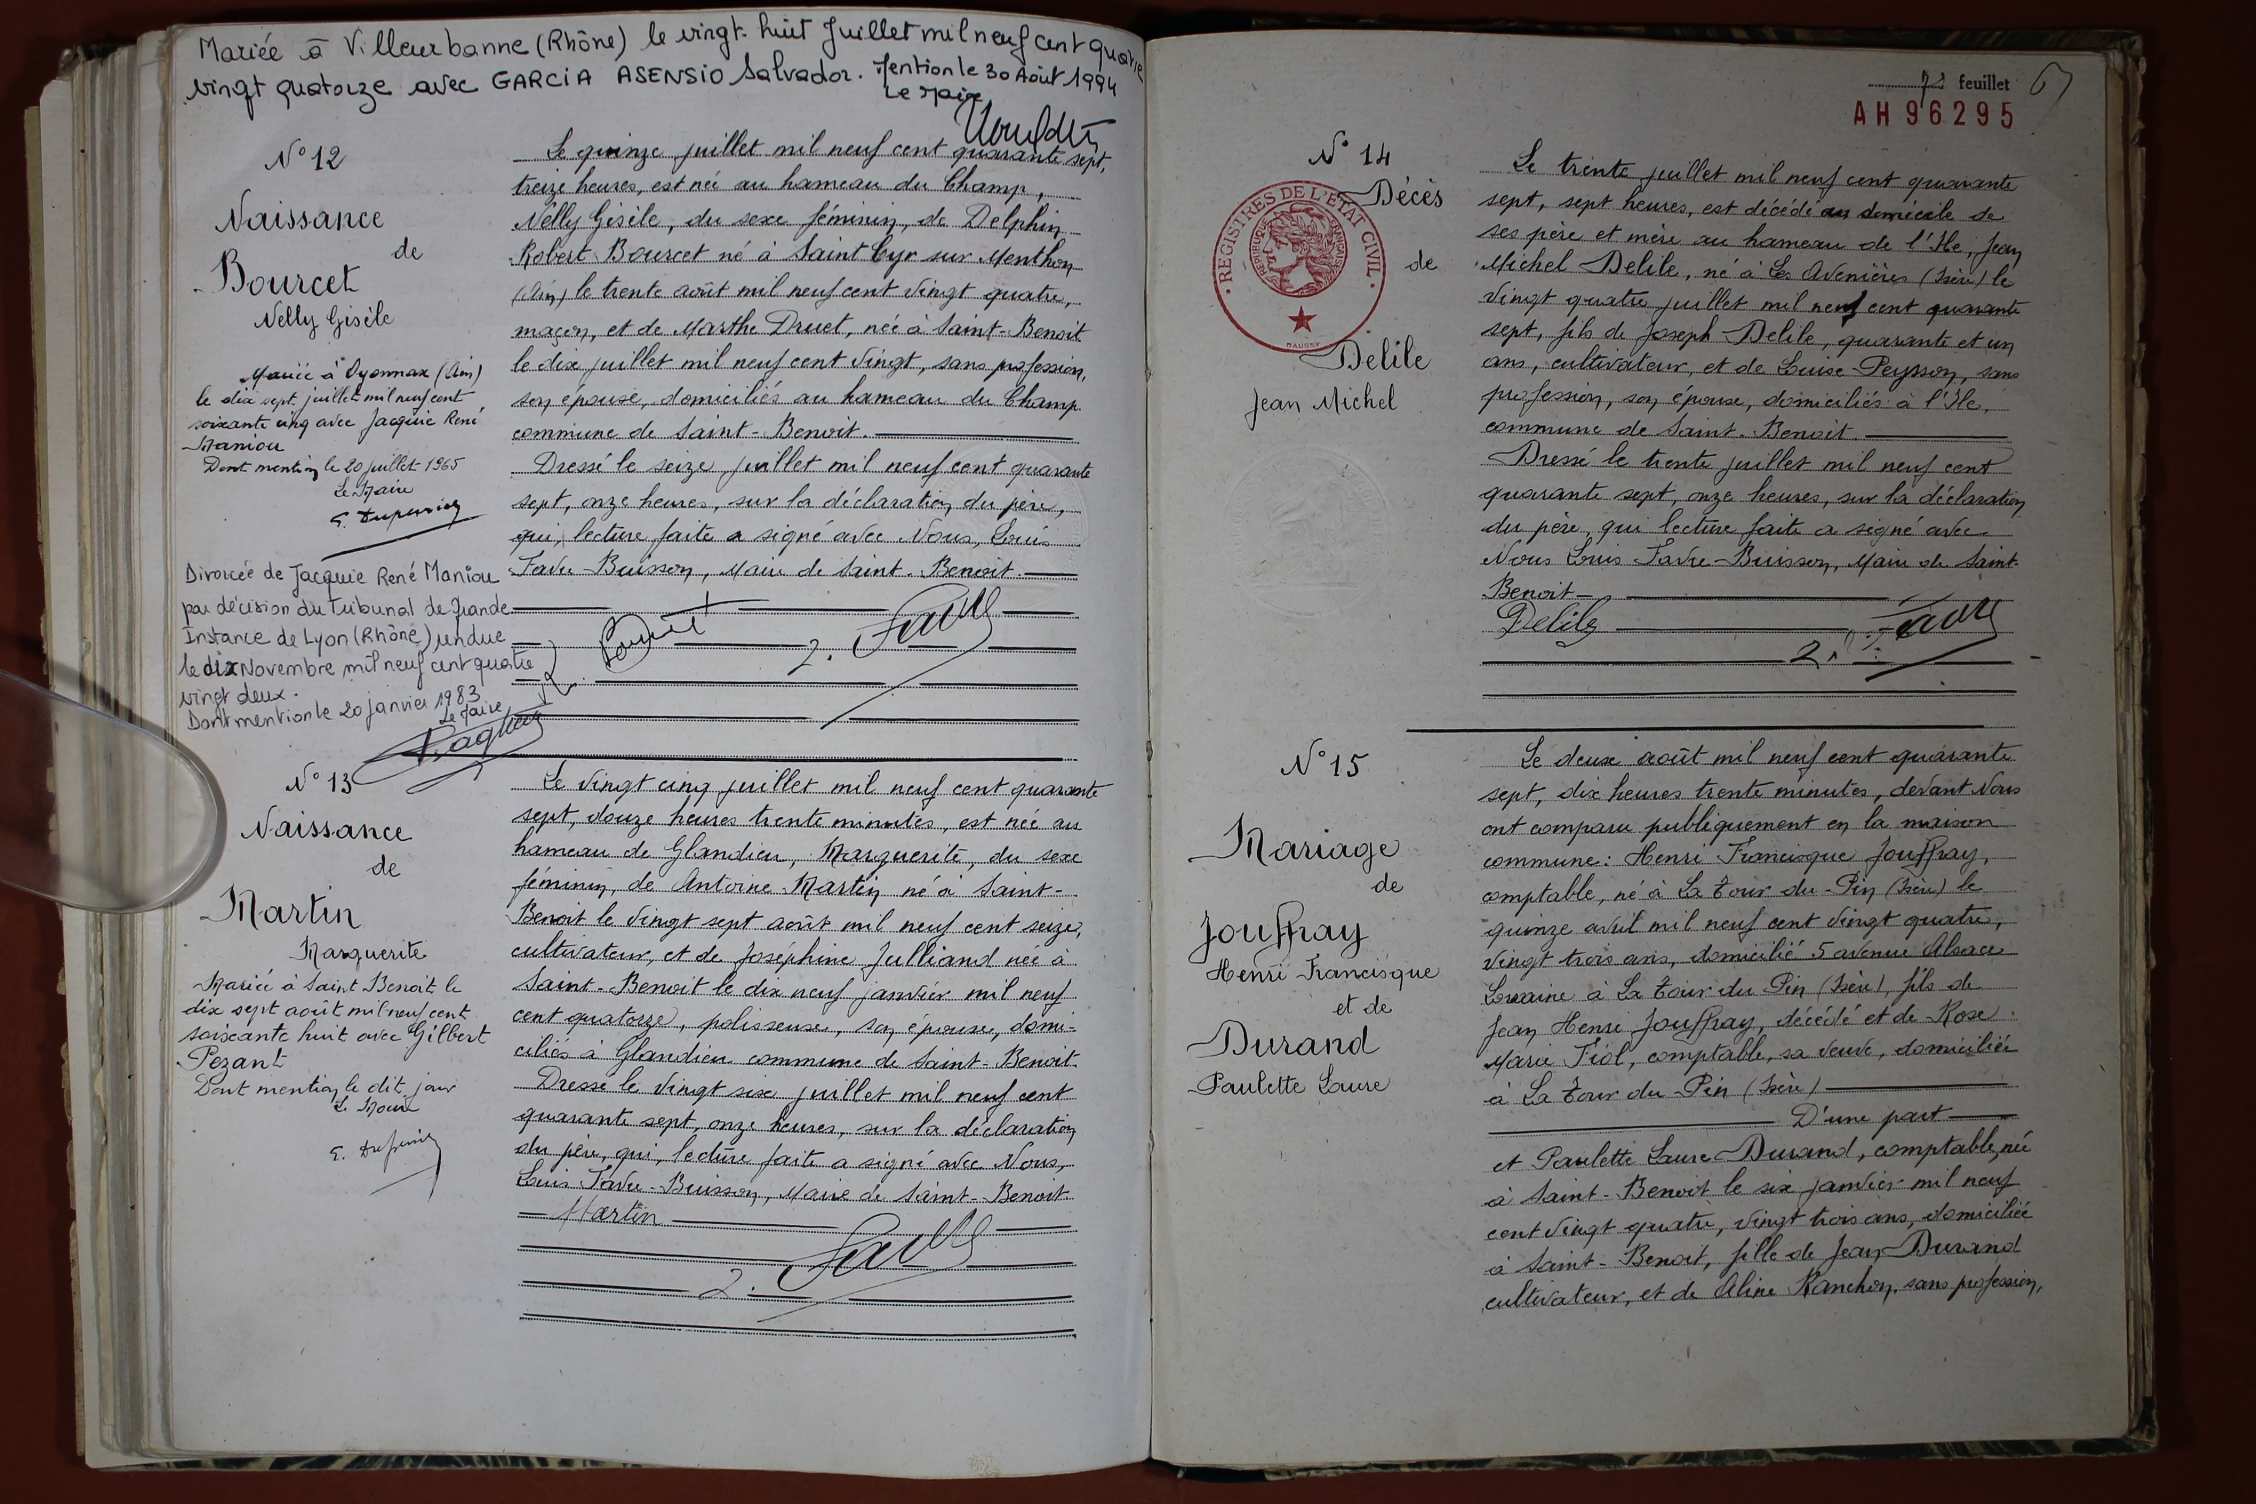 Mariée à Villeurbanne (Rhône) le vingt-huit Juillet mil neuf cent quatre
vingt quatorze avec GARCIA ASENSIO Salvador. Mention le 30 Août 1994
Le Maire
N° 12
Naissance
de
Bourcet
Nelly Gisèle
Mariée à Oyonnax (Ain)
le dix sept juillet mil neuf cent
soixante cinq avec Jacquie René
Maniou
Dont mention le 20 juillet 1965
Le Maire
Divorcée de Jacquie René Maniou
par décision du Tribunal de Grande
Instance de Lyon (Rhône) rendue
le dix Novembre mil neuf cent quatre
vingt deux.
Dont mention le 20 janvier 1983
Le Maire
Le quinze juillet mil neuf cent quarante sept,
treize heures, est née au hameau du Champ,
Nelly Gisèle, du sexe féminin, de Delphin
Robert Bourcet né à Saint Cyr sur Menthon
(Ain) le trente août mil neuf cent vingt quatre,
maçon, et de Marthe Druet, née à Saint-Benoit
le dix juillet mil neuf cent vingt, sans profession,
son épouse, domiciliés au hameau du Champ
commune de Saint-Benoit.
Dressé le seize juillet mil neuf cent quarante
sept, onze heures, sur la déclaration du père,
qui, lecture faite a signé avec Nous, Louis
Favre-Buisson, Maire de Saint-Benoit.
Bourcet
N° 13
Naissance
de
Martin
Marguerite
Mariée à Saint Benoit le
dix sept août mil neuf cent
soixante huit avec Gilbert
Pezant
Dont mention le dit jour
Le Maire
Le vingt cinq juillet mil neuf cent quarante
sept, douze heures trente minutes, est née au
hameau de Glandieu, Marguerite, du sexe
féminin, de Antoine Martin né à Saint-
Benoit le vingt sept août mil neuf cent seize,
cultivateur, et de Joséphine Julliand née à
Saint-Benoit le dix neuf janvier mil neuf
cent quatorze, polisseuse, son épouse, domi-
ciliés à Glandieu commune de Saint-Benoit.
Dressé le vingt six juillet mil neuf cent
quarante sept, onze heures, sur la déclaration
du père, qui, lecture faite a signé avec Nous,
Louis Favre-Buisson, Maire de Saint-Benoit
Martin
72 feuillet
AH 96295
N° 14
Décès
de
Delile
Jean Michel
REGISTRES DE L'ÉTAT CIVIL
RÉPUBLIQUE FRANÇAISE
Le trente juillet mil neuf cent quarante
sept, sept heures, est décédé au domicile de
ses père et mère au hameau de l'Ile, Jean
Michel Delile, né à Les Avenières (Isère) le
vingt quatre juillet mil neuf cent quarante
sept, fils de Joseph Delile, quarante et un
ans, cultivateur, et de Louise Peysson, sans
profession, son épouse, domiciliés à l'Ile,
commune de Saint-Benoit.
Dressé le trente juillet mil neuf cent
quarante sept, onze heures, sur la déclaration
du père, qui lecture faite a signé avec
Nous Louis Favre-Buisson, Maire de Saint-
Benoit
Delile
N° 15
Mariage
de
Jouffray
Henri Francisque
et de
Durand
Paulette Laure
Le deux août mil neuf cent quarante
sept, dix heures trente minutes, devant Nous
ont comparu publiquement en la maison
commune: Henri Francisque Jouffray,
comptable, né à La Tour du-Pin (Isère) le
quinze avril mil neuf cent vingt quatre,
vingt trois ans, domicilié 5 avenue Alsace
Lorraine à La Tour du Pin (Isère), fils de
Jean Henri Jouffray, décédé et de Rose
Marie Fiol, comptable, sa veuve, domiciliée
à La Tour du Pin (Isère)
D'une part
et Paulette Laure Durand, comptable, née
à Saint-Benoit le six janvier mil neuf
cent vingt quatre, vingt trois ans, domiciliée
à Saint-Benoit, fille de Jean Durand
cultivateur, et de Aline Ranchon, sans profession,